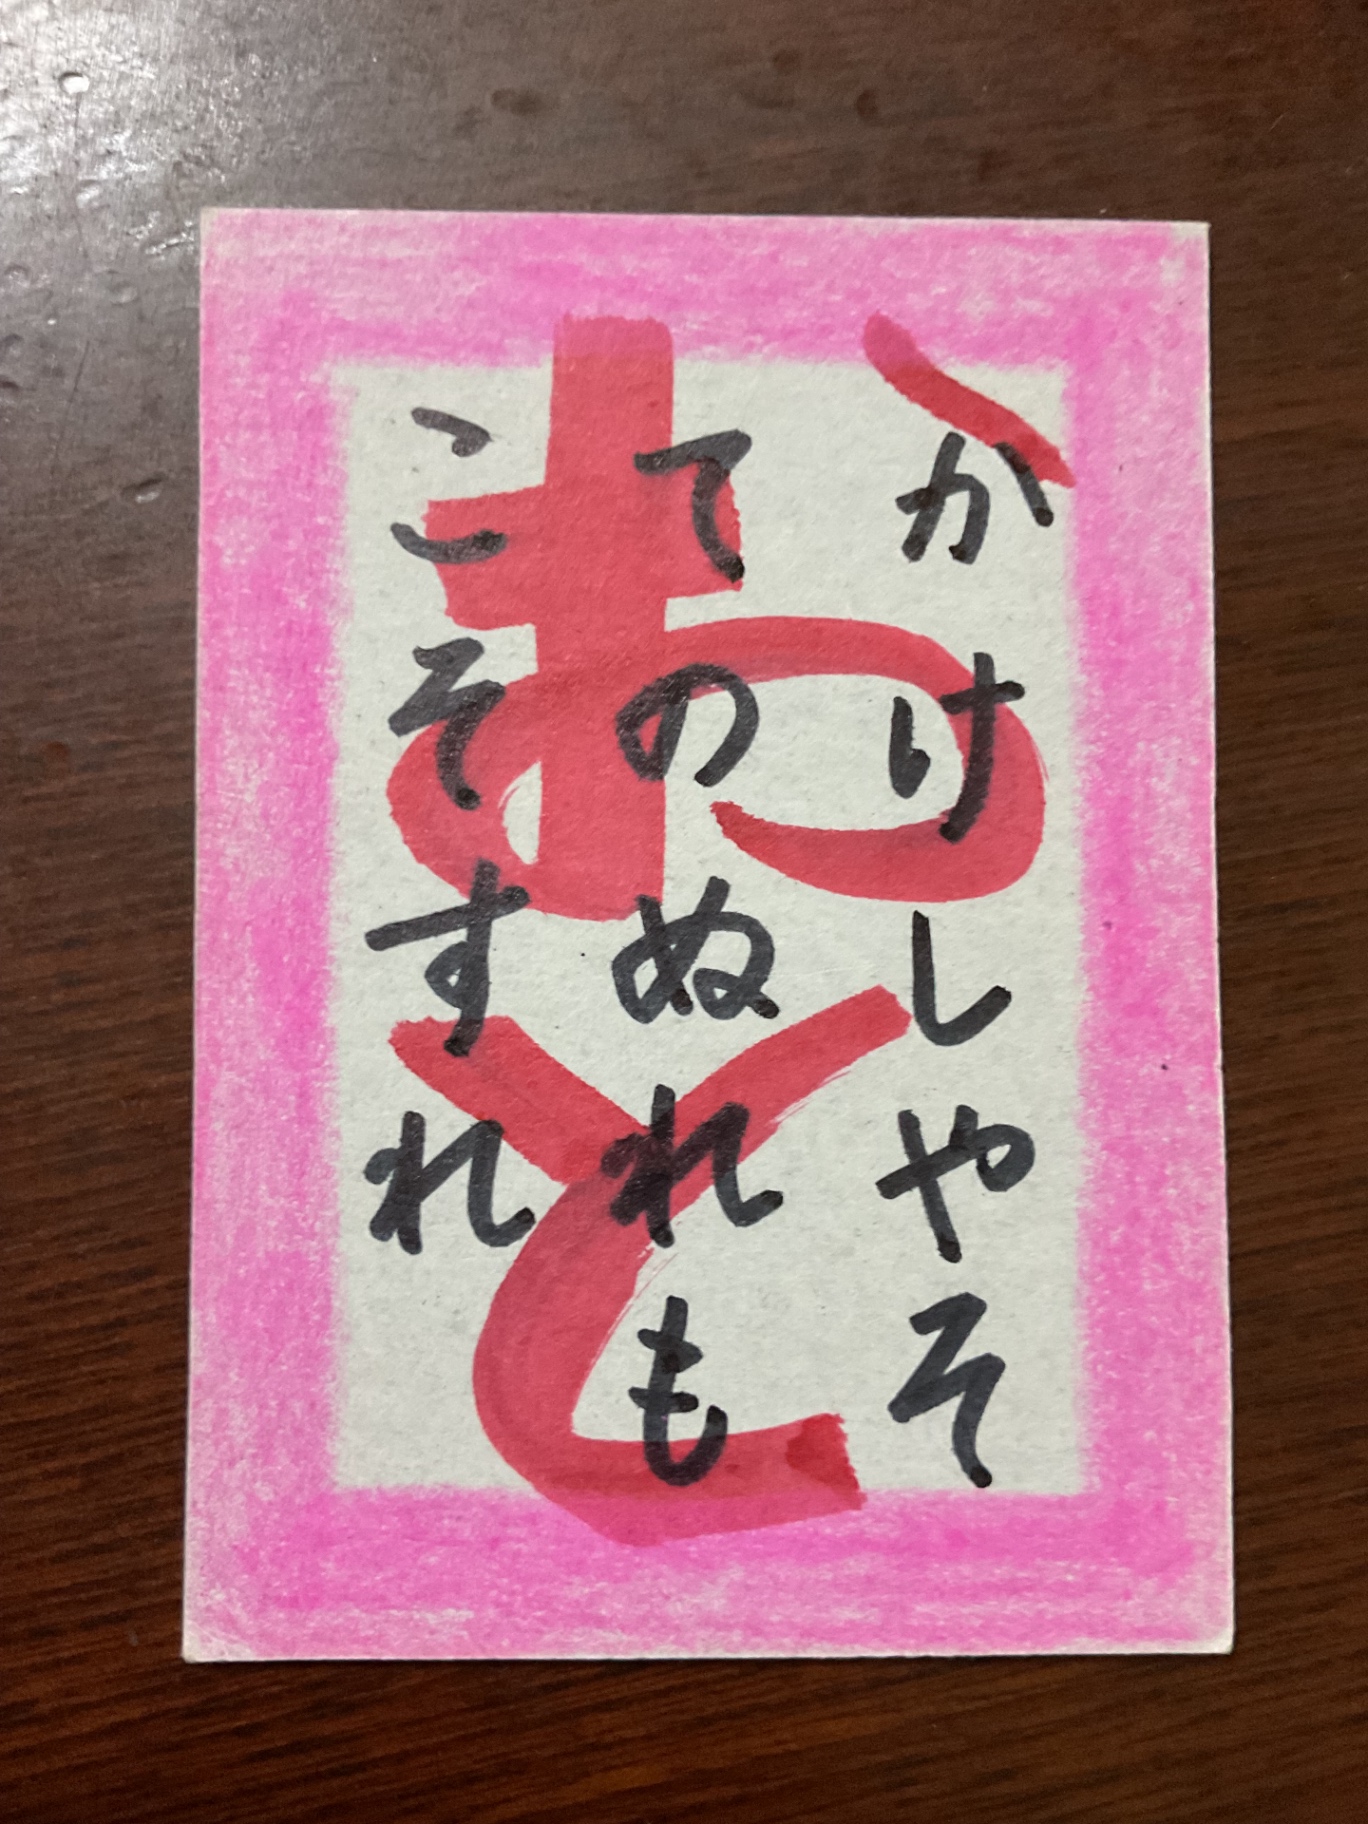 おと
かけしやそ
てのぬれも
こそすれ